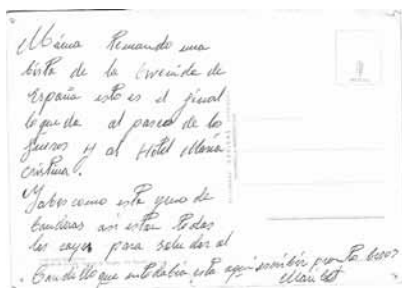 Máma Remando una
bista de la Avenida de
España esto es el jinal
lo que da al paseo de los
fueros y al Hotel María
Cristina.
Jabes como esta yeno de
banderas asi estan todas
las cayes para saludar al
Caudillo que antodabia esta aqui escribir pronto besos